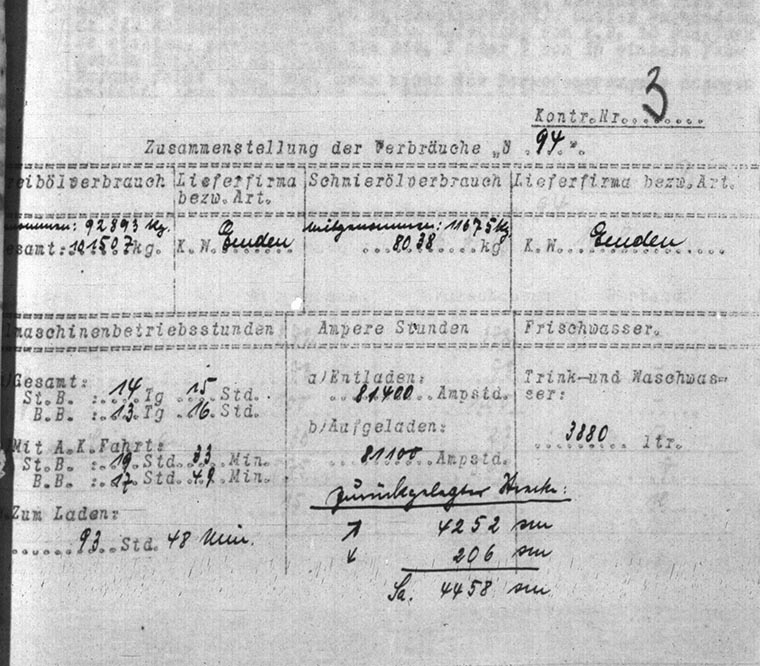 Kontr.Nr. 3
Zusammenstellung der Verbräuche „U 94".
reibölverbrauch Lieferfirma bezw.Art. Schmierölverbrauch Lieferfirma bezw.Art.
: 92893 kg. mitgenommen: 11675 kg
samt: 101507 kg. K.W. Emden 8038 kg K.W. Emden
lmaschinenbetriebsstunden Ampere Stunden Frischwasser.
a)Gesamt:
St.B. : 14 Tg 15 Std.
B.B. : 13 Tg 16 Std.
)Mit A.K.Fahrt:
St.B. : 19 Std. 33 Min.
B.B. : 17 Std. 49 Min.
.Zum Laden:
93 Std. 48 Min.
a)Entladen:
81400 Ampstd.
b)Aufgeladen:
81100 Ampstd.
Trink-und Waschwas=
ser:
3880 ltr.
Zurückgelegter Strecke:
↗ 4252 sm
↓ 206 sm
Sa. 4458 sm